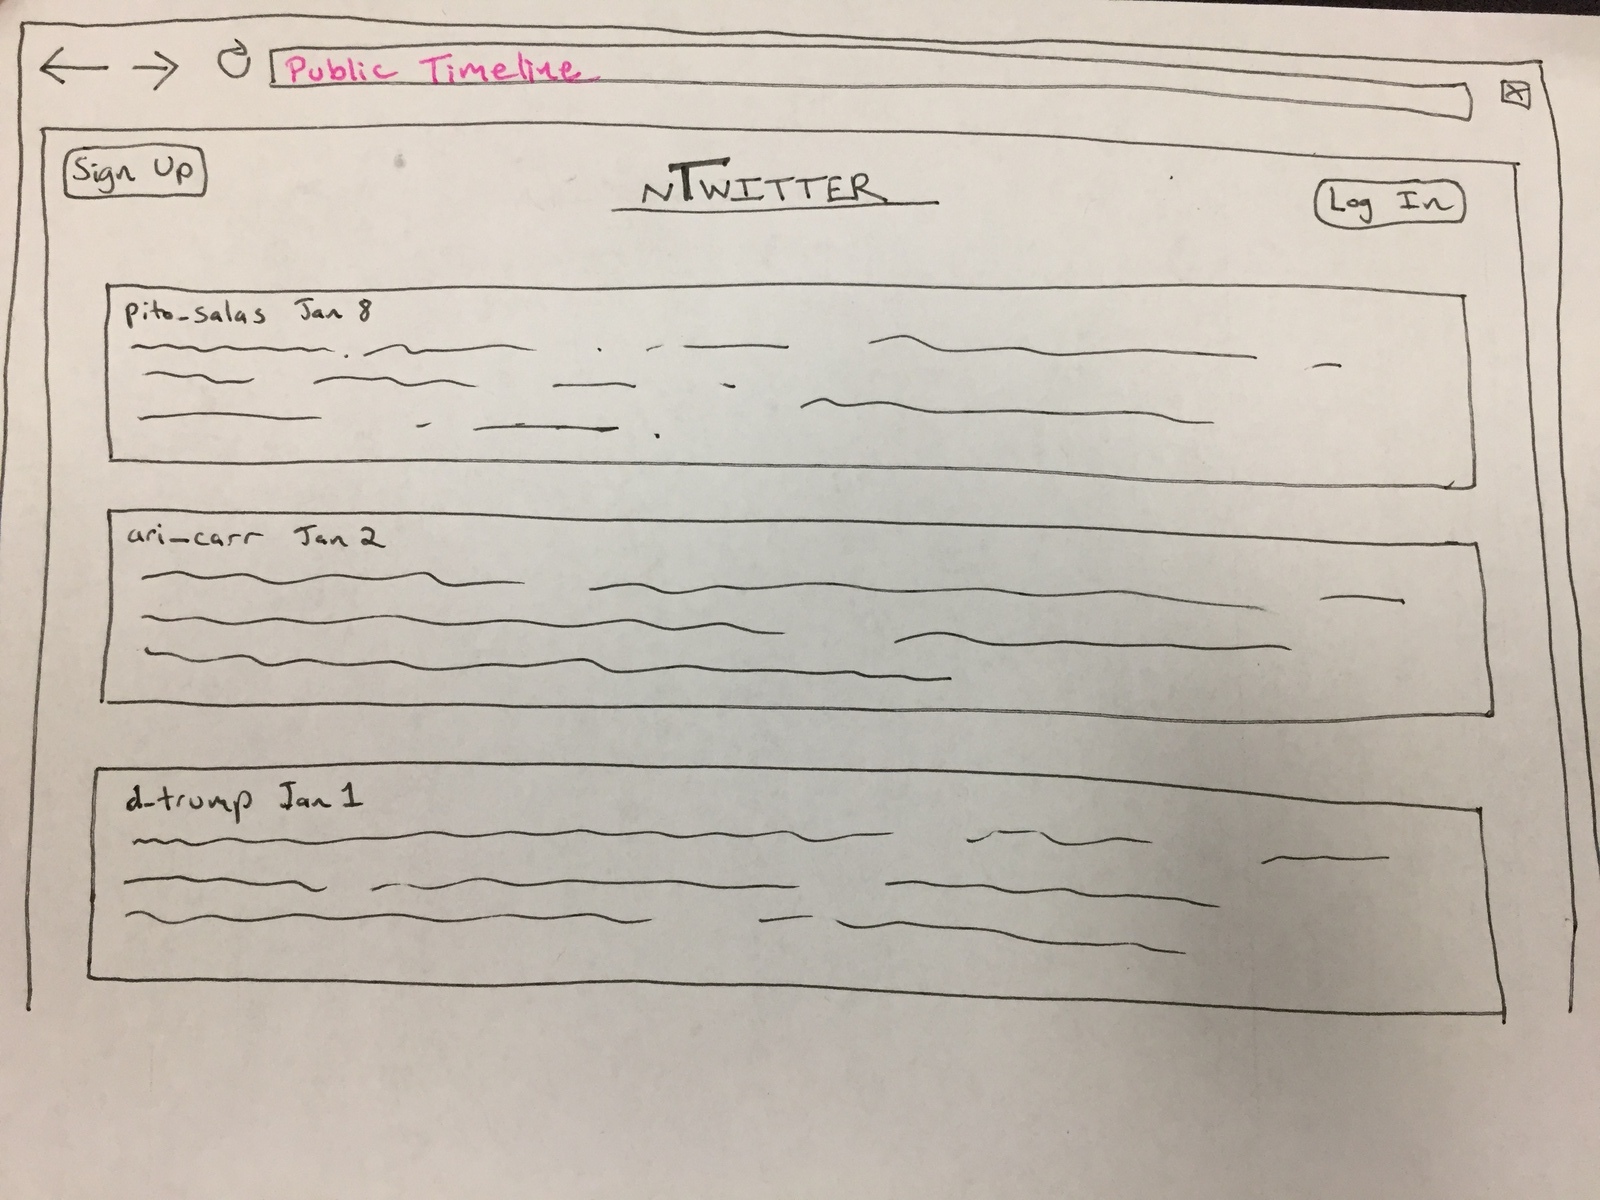 Public Timeline
Sign Up
nTWITTER
Log In
pito_salas Jan 8
ari_carr Jan 2
d_trump Jan 1